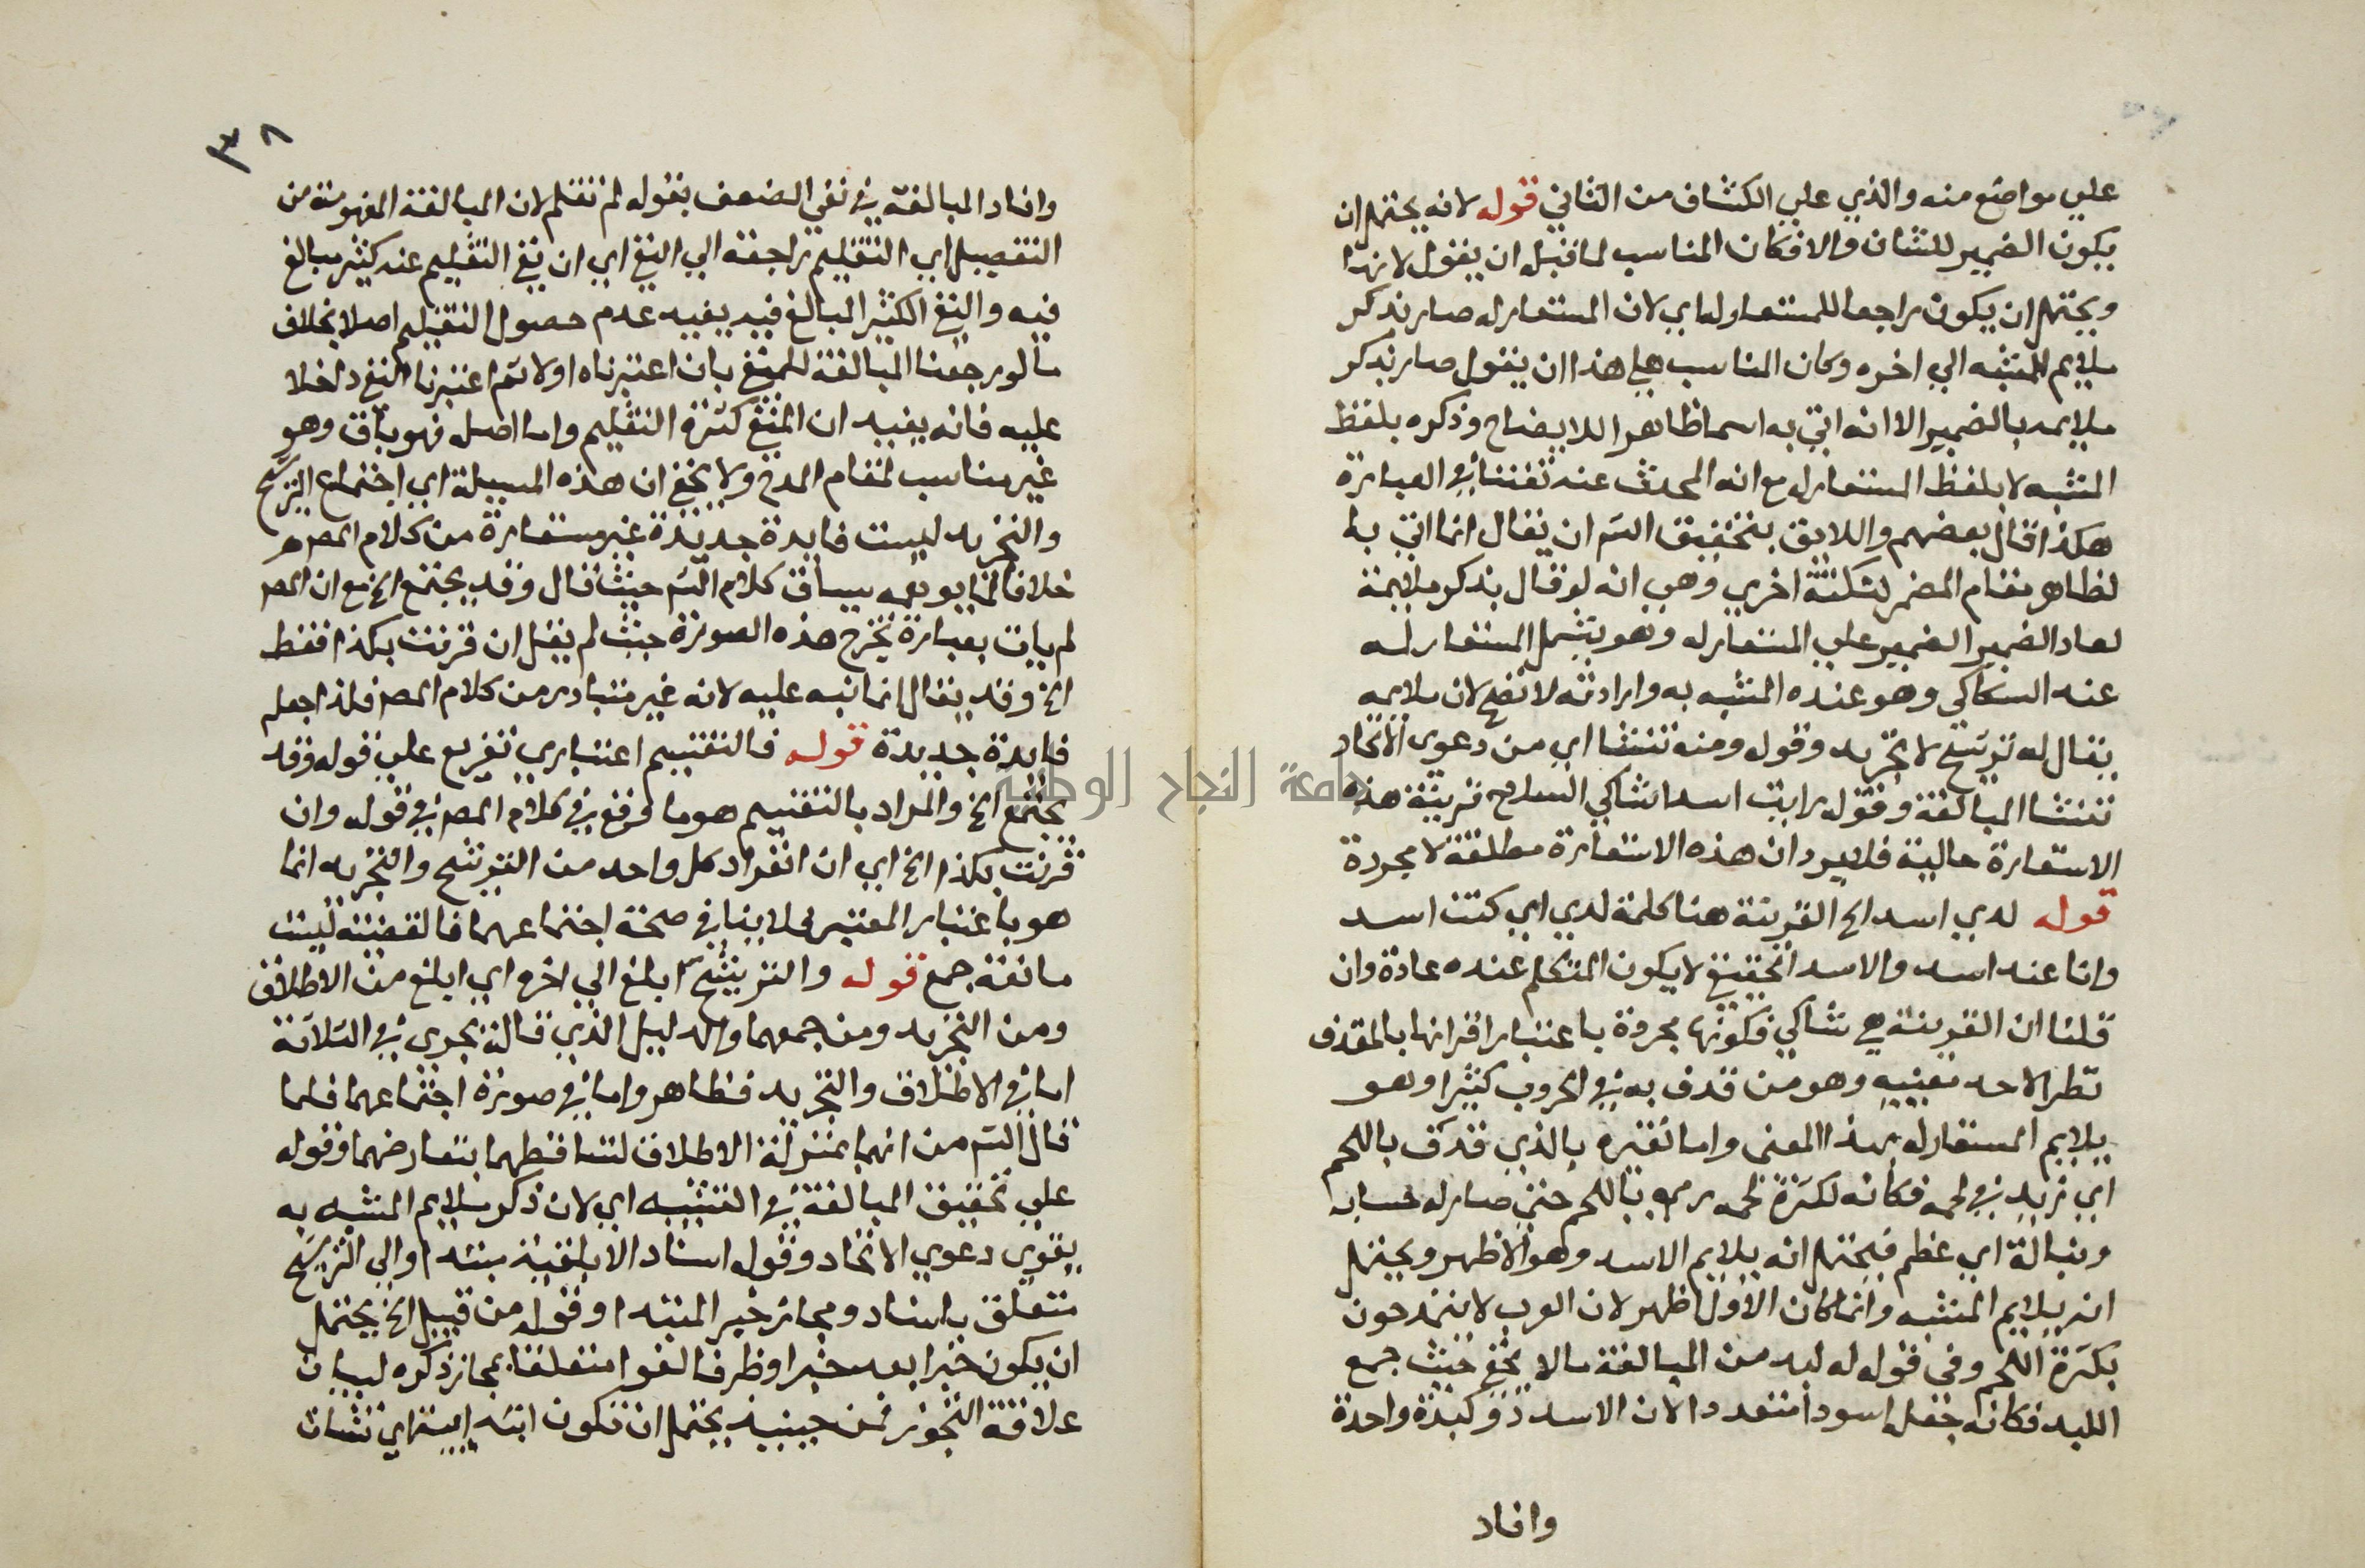 علي مواضع منه والذي علي الكشاف من الثاني قوله لانه يحتمل ان
يكون الضمير للشان والا فكان المناسب لما قبل ان يقول لانها
ويحتمل ان يكون راجعا للمستعار له اي لان المستعار له صار بذكر
ملايم المشبه الي اخره وكان المناسب علي هذا ان يقول صار بذكر
ملايمه بالضمير الا انه اتي به اسما ظاهرا للايضاح وذكره بلفظ
المشبه لا بلفظ المستعار له مع انه المحدث عنه تفننا في العبارة
هكذا قال بعضهم واللايق بتحقيق الش ان يقال انما اتي با
لظاهر مقام المضمر لنكتة اخري وهي انه لو قال بذكر ملايمة
لعاد الضمير الضمير علي المستعار له وهو يشمل المستعار له
عند السكاكي وهو عنده المشبه به وارادته لا تصح لان ملايمه
يقال له ترشيح لا تجريد وقوله ومنه تنشا اي من دعوي الاتحاد
تنشا المبالغة وقوله رايت اسدا شاكي السلاح قرينة هذه
الاستعارة حالية فلا يرد ان هذه الاستعارة مطلقة لا مجردة
قوله لدي اسد الخ القرينة هنا كلمة لدي اي كنت اسد
وانا عند اسد والاسد الحقيقي لا يكون المتكلم عنده عادة وان
قلنا ان القرينة هي شاكي فكونها مجردة باعتبار اقترانها بالمقذف
نظرا لاحد معنييه وهو من قذف به في الحروب كثيرا وهو
يلايم المستعار له بهذا المعني واما تفسيره بالذي قذف باللحم
اي زيد في لحمه فكانه لكثرة لحمه رمي باللحم حتي صار له جسامه
ونبالة اي عظم فيحتمل انه يلايم الاسد وهو الاظهر ويحتمل
انه يلايم المشبه وانما كان الاول اظهر لان العرب لا يتمدحون
بكثرة اللحم وفي قوله له لبد من المبالغة ما لا يخفي حيث جمع
اللبد فكانه جعل اسودا متعددا لان الاسد ذو لبدة واحدة
وافاد
٣٨
وافاد المبالغة في نفي الضعف بقوله لم تقلم لان المبالغة المفهومة من
التفصيل اي التقليم راجعة الي النفي اي ان نفي التقليم عنه كثير مبالغ
فيه والنفي الكثير المبالغ فيه يفيد عدم حصول التقليم اصلا بخلاف
ما لو رجعنا المبالغة للمنفي بان اعتبرناه اولا ثم اعتبرنا النفي داخلا
عليه فانه يفيد ان المنفي كثرة التقليم واما اصله فهو باق وهو
غير مناسب لمقام المدح ولا يخفي ان هذه المسيلة اي اجتماع الترشيح
والتجريد ليست فايدة جديدة غير مستفادة من كلام المص
خلافا لما يوهمه سياق كلام الش حيث قال وقد يجتمع الخ مع ان المص
لم يات بعبارة تخرج هذه الصورة حيث لم يقل ان قرنت بكذا فقط
الخ وقد يقال انما نبه عليه لانه غير متبادر من كلام المص فلذا جعله
فايدة جديدة قوله فالتقسيم اعتباري تفريع علي قوله وقد
يجتمع الخ والمراد بالتقسيم هو ما وقع في كلام المص في قوله وان
قرنت بكذا الخ اي ان انفراد كل واحد من الترشيح والتجريد انما
هو باعتبار المعتبر فلا ينافي صحة اجتماعهما فالقضية ليست
مانعة جمع قوله والترشيح ابلغ الي اخره اي ابلغ من الاطلاق
ومن التجريد ومن جمعهما والدليل الذي قاله يجري في الثلاثة
اما في الاطلاق والتجريد فظاهر واما في صورة اجتماعهما فلما
قال الش من انهما بمنزلة الاطلاق لتساقطهما بتعارضهما وقوله
علي تحقيق المبالغة في التشبيه اي لان ذكر ملايم المشبه به
يقوي دعوي الاتحاد وقوله اسناد الابلغية مبتدا والي الترشيح
متعلق باسناد ومجاز خبر المبتدا وقوله من قبيل الخ يحتمل
ان يكون خبرا بعد خبر او ظرفا لغوا متعلقا بمجاز ذكره لبيان
علاقة التجوز فمن حينيذ يحتمل ان تكون ابتدايية اي نشات